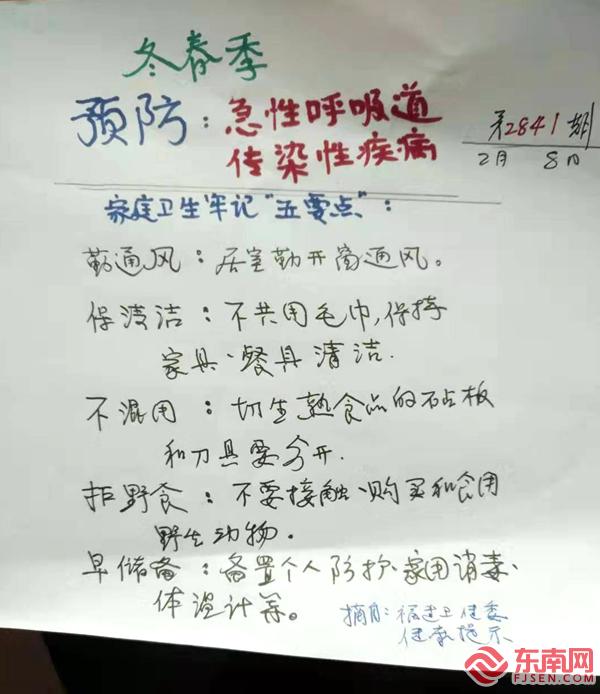 冬春季
预防：急性呼吸道
传染性疾病
第2841期
2月8日
家庭卫生牢记“五要点”：
勤通风：居室勤开窗通风。
保清洁：不共用毛巾，保持
家具、餐具清洁.
不混用：切生熟食品的砧板
和刀具要分开.
拒野食：不要接触、购买和食用
野生动物.
早储备：备置个人防护、家用消毒、
体温计等。
摘自：福建卫健委
健康提示
东南网
FJSEN.COM